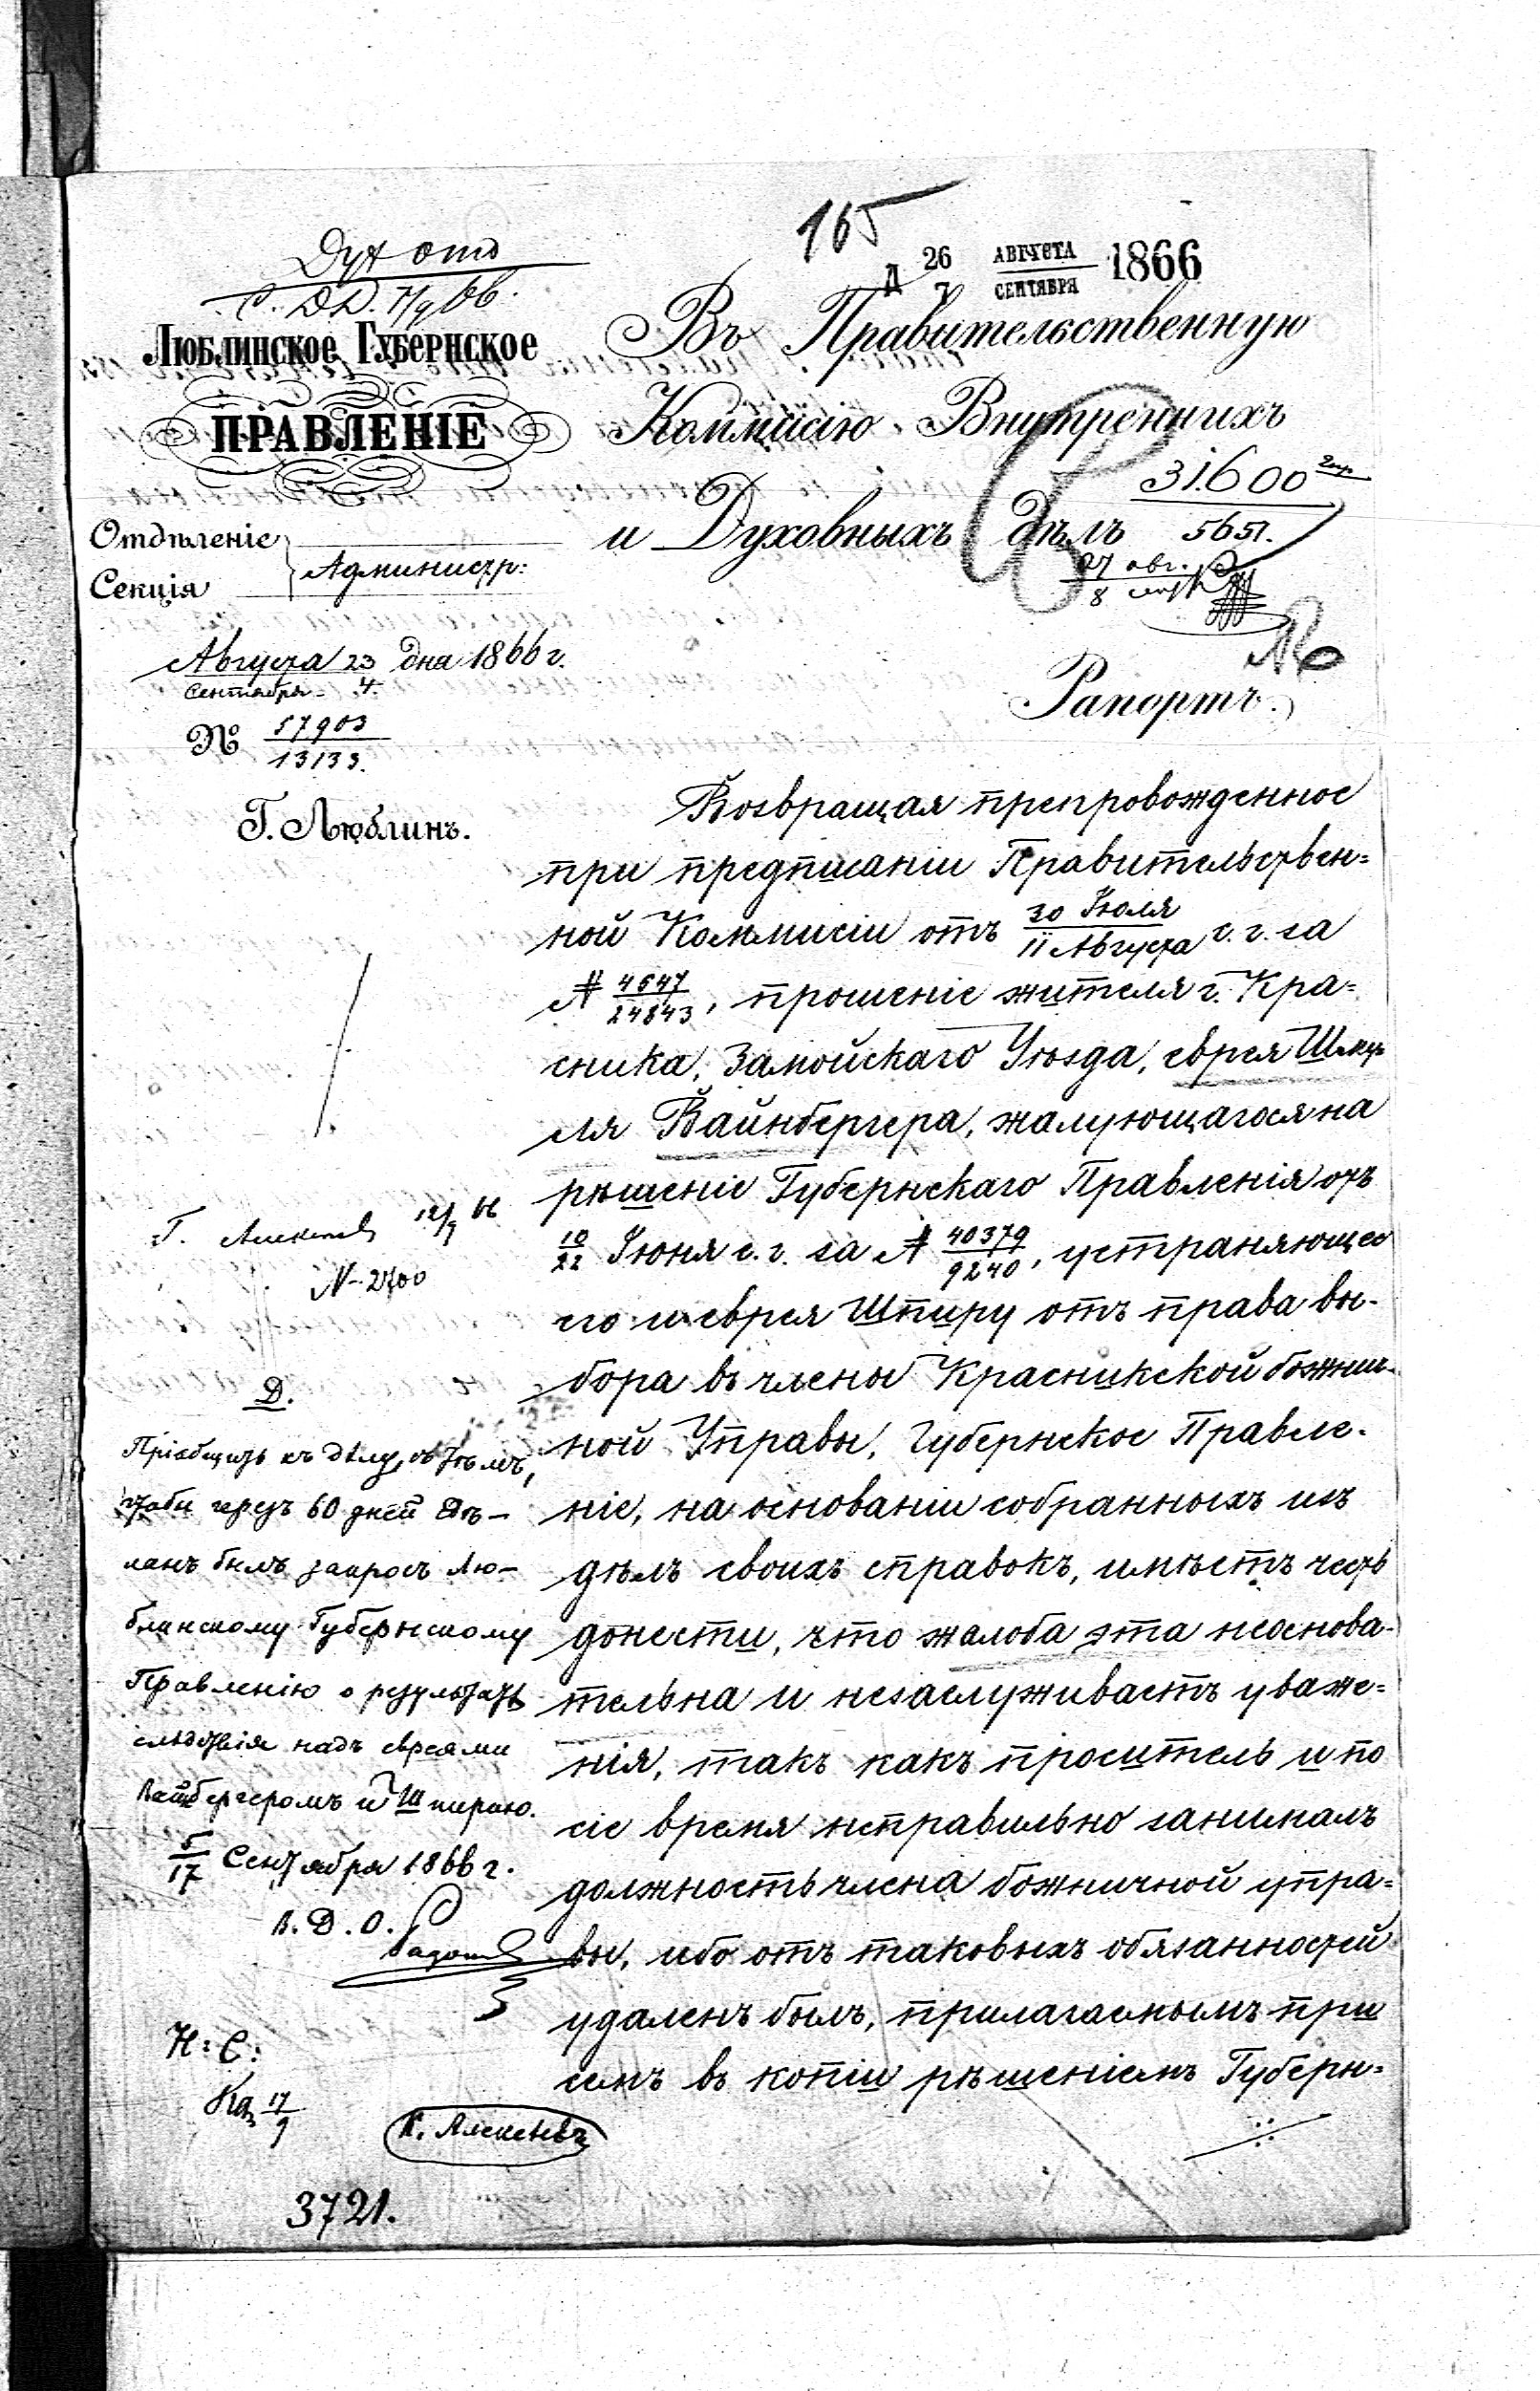 165
Дух отд
С. Д.Д. 7/9 66.
26 АВГУСТА 1866
7 СЕНТЯБРЯ
ЛЮБЛИНСКОЕ ГУБЕРНСКОЕ
ПРАВЛЕНІЕ
Отдѣленіе
Секція
Администр:
Августа 23 дня 1866 г.
Сентября 4.
№ 57903
13133.
Г. Люблинъ.
Въ Правительственную
Коммисію Внутреннихъ
и Духовныхъ дѣлъ
31600
5651.
27 авг.
8
Рапортъ.
Возвращая препровожденное
при предписаніи Правительствен=
ной Коммисіи отъ 30 Іюля / 11 Августа с. г. за
№ 4647 / 24843, прошеніе жителя г. Кра=
сника, Замойскаго Уѣзда, еврея Шму
ля Вайнбергера, жалующагося на
рѣшеніе Губернскаго Правленія отъ
10/22 Іюня с. г. за № 40379 / 9240, устраняющее
его и еврея Шпиру отъ права вы-
бора въ члены Красникской божнич-
ной Управы, Губернское Правле-
ніе, на основаніи собранныхъ изъ
дѣлъ своихъ справокъ, имѣетъ честь
донести, что жалоба эта неоснова-
тельна и незаслуживаетъ уваже=
нія, такъ какъ проситель и по
сіе время неправильно занималъ
должность члена божничной упра=
вы, ибо отъ таковыхъ обязанностей
удаленъ былъ, прилагаемымъ при
семъ въ копіи рѣшеніемъ Губерн=
Г. Алексѣевъ 12/9 66
N- 2700
Д.
Пріобщить къ дѣлу, съ тѣмъ,
чтобы черезъ 60 дней сдѣ-
ланъ былъ запросъ Лю-
блинскому Губернскому
Правленію о результатѣ
слѣдствія надъ евреями
Вайнбергеромъ и Шпирою.
5/17 Сентября 1866 г.
В. Д. О.
Н: С:
17/9
К. Алексѣевъ
3721.